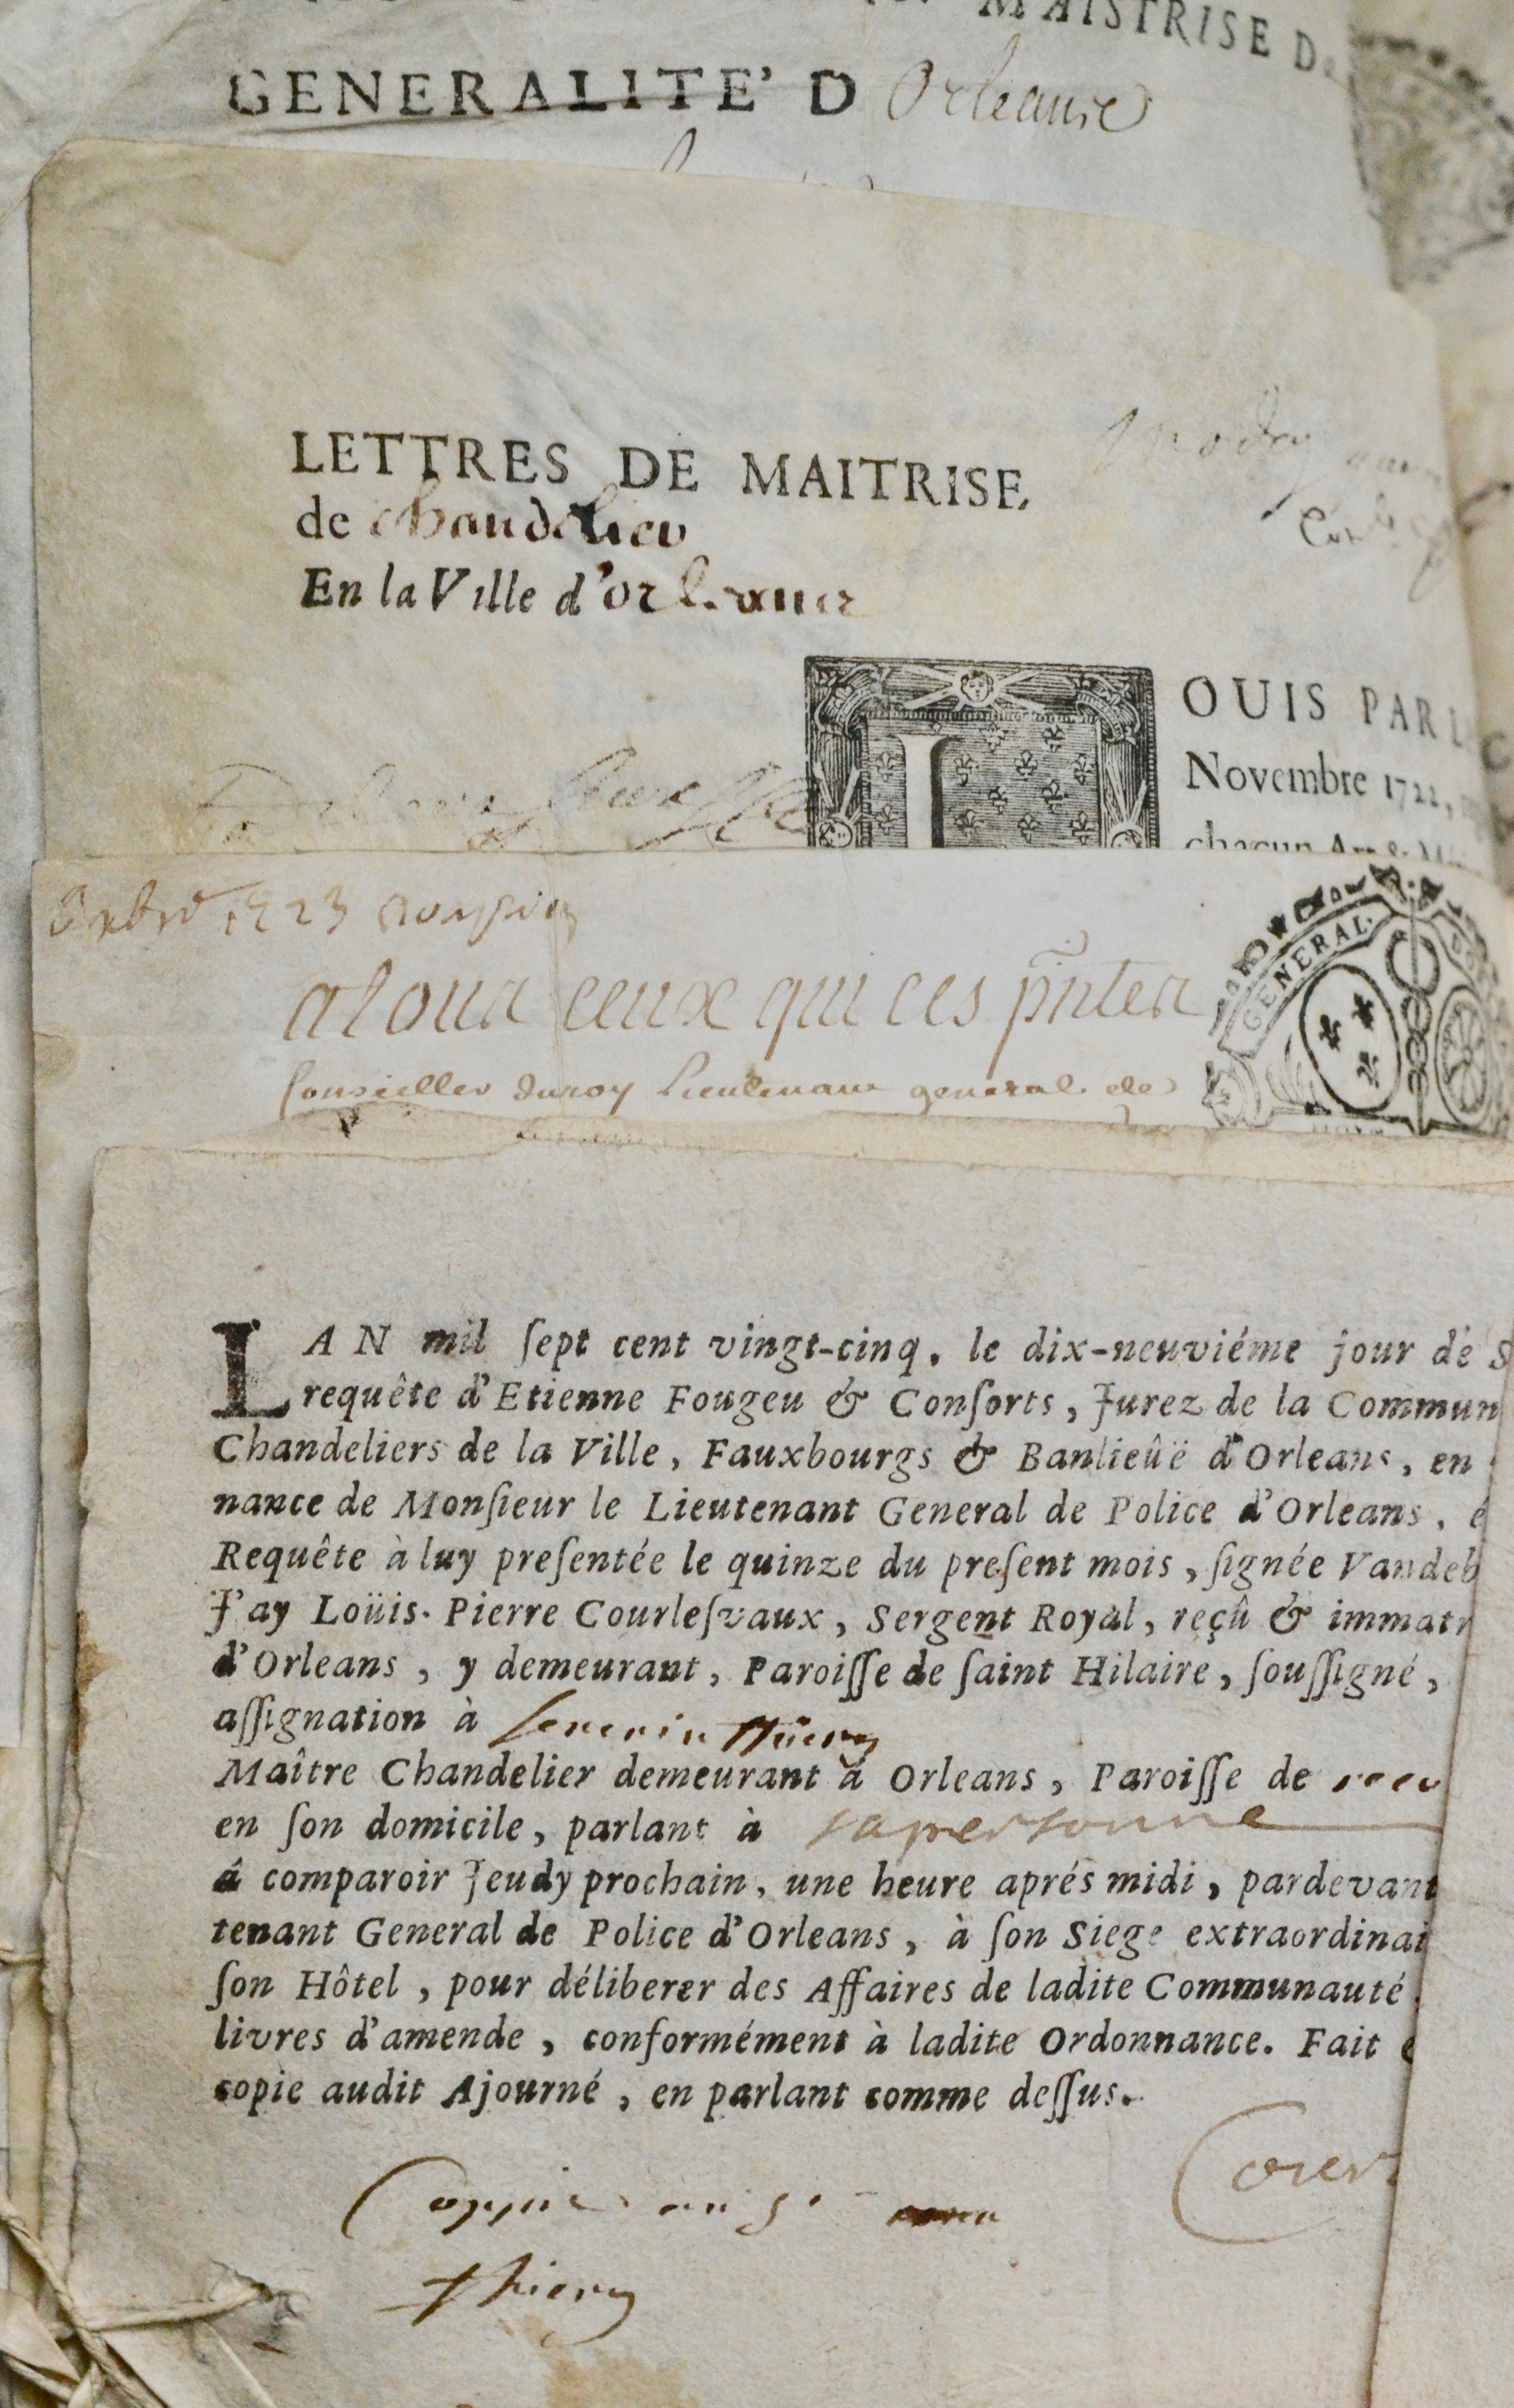 MAISTRISE D
GENERALITE' D Orleans
LETTRES DE MAITRISE
de chandelier
En la Ville d'orleans
LOUIS PAR L
Novembre 1722,
chacun Art &
1723
atous ceux qui ces pñtes
GENERAL.
Conseiller du roy Lieutenant general de
LAN mil ſept cent vingt-cinq, le dix-neuviéme jour de S
requête d'Etienne Fougeu & Conſorts, Jurez de la Commun
Chandeliers de la Ville, Fauxbourgs & Banlieûë d'Orleans, en
nance de Monſieur le Lieutenant General de Police d'Orleans, é
Requête à luy preſentée le quinze du preſent mois, ſignée Vandeb
J'ay Loüis-Pierre Courleſvaux, Sergent Royal, reçû & immatr
d'Orleans, y demeurant, Paroiſſe de ſaint Hilaire, ſouſſigné,
aſſignation à Severin Thiery
Maître Chandelier demeurant à Orleans, Paroiſſe de
en ſon domicile, parlant à sa personne
á comparoir Jeudy prochain, une heure aprés midi, pardevant
tenant General de Police d'Orleans, à ſon Siege extraordinai
ſon Hôtel, pour déliberer des Affaires de ladite Communauté
livres d'amende, conformément à ladite Ordonnance. Fait
copie audit Ajourné, en parlant comme deſſus.
Coppie au sr
Thiery